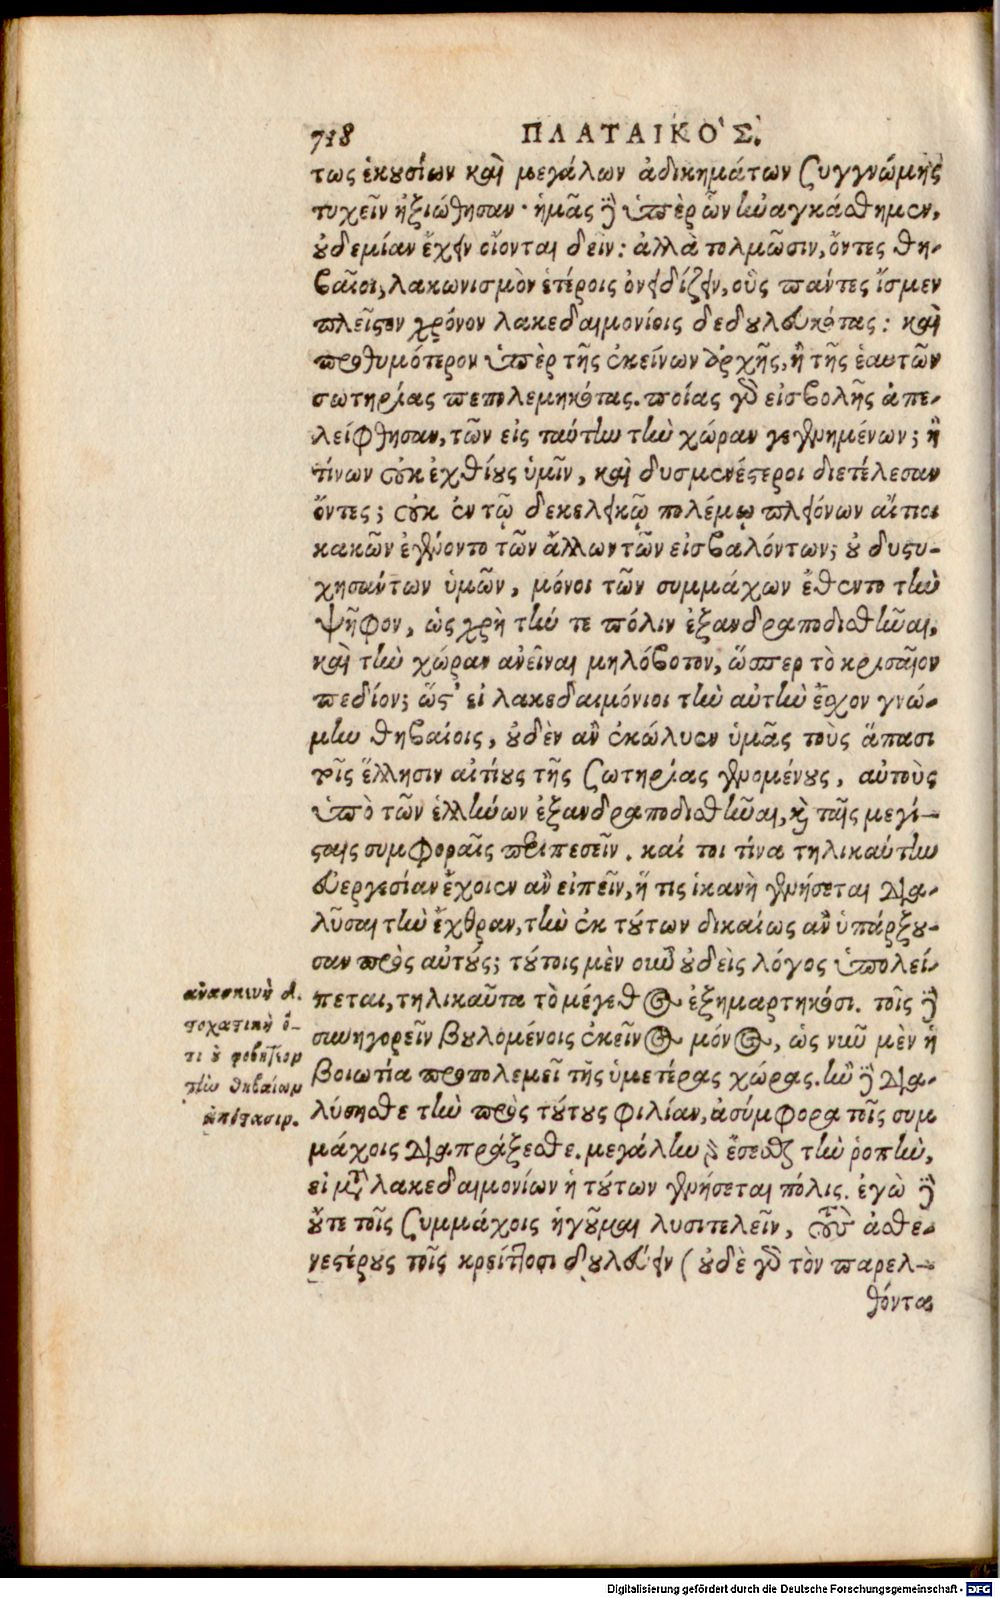 718 ΠΛΑΤΑΙΚΟ΄Σ.
τως ἑκουσίων καὶ μεγάλων ἀδικημάτων συγγνώμης
τυχεῖν ἠξιώθησαν· ἡμᾶς δὲ ὑπὲρ ὧν ἠναγκάσθημεν,
οὐδεμίαν ἔχειν οἴονται δεῖν: ἀλλὰ τολμῶσιν, ὄντες θη-
βαῖοι, λακωνισμὸν ἑτέροις ὀνειδίζειν, οὓς πάντες ἴσμεν
πλεῖστον χρόνον λακεδαιμονίοις δεδουλευκότας: καὶ
προθυμότερον ὑπὲρ τῆς ἐκείνων ἀρχῆς, ἢ τῆς ἑαυτῶν
σωτηρίας πεπολεμηκότας. ποίας γὰρ εἰσβολῆς ἀπε-
λείφθησαν, τῶν εἰς ταύτην τὴν χώραν γεγενημένων; ἢ
τίνων οὐκ ἐχθίους ὑμῖν, καὶ δυσμενέστεροι διετέλεσαν
ὄντες; οὐκ ἐν τῷ δεκελεικῷ πολέμῳ πλειόνων αἴτιοι
κακῶν ἐγένοντο τῶν ἄλλων τῶν εἰσβαλόντων; οὐ δυστυ-
χησάντων ὑμῶν, μόνοι τῶν συμμάχων ἔθεντο τὴν
ψῆφον, ὡς χρὴ τήν τε πόλιν ἐξανδραποδισθῆναι,
καὶ τὴν χώραν ἀνεῖναι μηλόβοτον, ὥσπερ τὸ κρισαῖον
πεδίον; ὥστ' εἰ λακεδαιμόνιοι τὴν αὐτὴν ἔσχον γνώ-
μην θηβαίοις, οὐδὲν ἂν ἐκώλυεν ὑμᾶς τοὺς ἅπασι
τοῖς ἕλλησιν αἰτίους τῆς σωτηρίας γενομένους, αὐτοὺς
ὑπὸ τῶν ἑλλήνων ἐξανδραποδισθῆναι, καὶ ταῖς μεγί-
σταις συμφοραῖς περιπεσεῖν. καί τοι τίνα τηλικαύτην
εὐεργεσίαν ἔχοιεν ἂν εἰπεῖν, ἥ τις ἱκανὴ γενήσεται δια-
λῦσαι τὴν ἔχθραν, τὴν ἐκ τούτων δικαίως ἂν ὑπάρξου-
σαν πρὸς αὐτούς; τούτοις μὲν οὖν οὐδεὶς λόγος ὑπολεί-
πεται, τηλικαῦτα τὸ μέγεθος ἐξημαρτηκόσι. τοῖς δὲ
συνηγορεῖν βουλομένοις ἐκεῖνος μόνος, ὡς νῦν μὲν ἡ
βοιωτία προπολεμεῖ τῆς ὑμετέρας χώρας. ἢν δὲ δια-
λύσησθε τὴν πρὸς τούτους φιλίαν, ἀσύμφορα τοῖς συμ
μάχοις διαπράξεσθε. μεγάλην γὰρ ἔσεσθαι τὴν ῥοπὴν,
εἰ μετὰ λακεδαιμονίων ἡ τούτων γενήσεται πόλις. ἐγὼ δὲ
οὔτε τοῖς συμμάχοις ἡγοῦμαι λυσιτελεῖν, τοὺς ἀσθε-
νεστέρους τοῖς κρείττοσι δουλεύειν (οὐδὲ γὰρ τὸν παρελ-
θόντα
ἀνασκευὴ
στοχαστικὴ ὅ-
τι οὐ φοβητέον
τὴν θηβαίων
ἀπόστασιν.
Digitalisierung gefördert durch die Deutsche Forschungsgemeinschaft - DFG